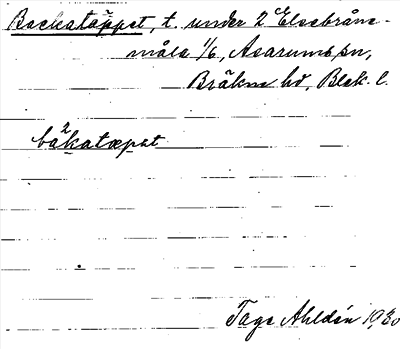 Backatäppet, t. under 2 Elsebråne-
måla 1/6, Asarums sn,
Bräkne hd, Blek. l.
bàkatæpat
Tage Ahldén 1930